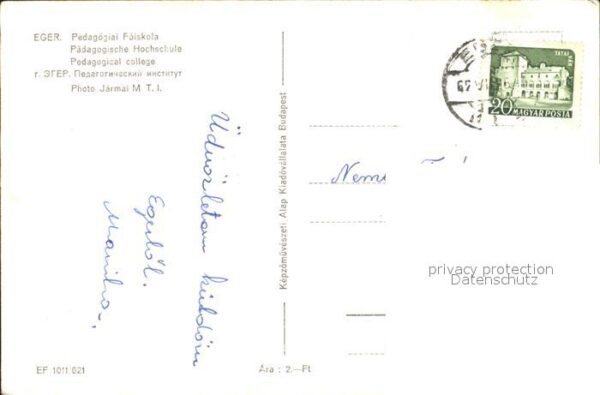 EGER. Pedagógiai Főiskola
Pädagogische Hochschule
Pedagogical college
г. ЭГЕР. Педагогический институт
Photo Jármai M. T. I.
Üdvözletem küldöm
Egerből.
Képzőművészeti Alap Kiadóvállalata Budapest
TATAI VÁR
20 MAGYAR POSTA
privacy protection
Datenschutz
EF 1011/621
Ára : 2.—Ft